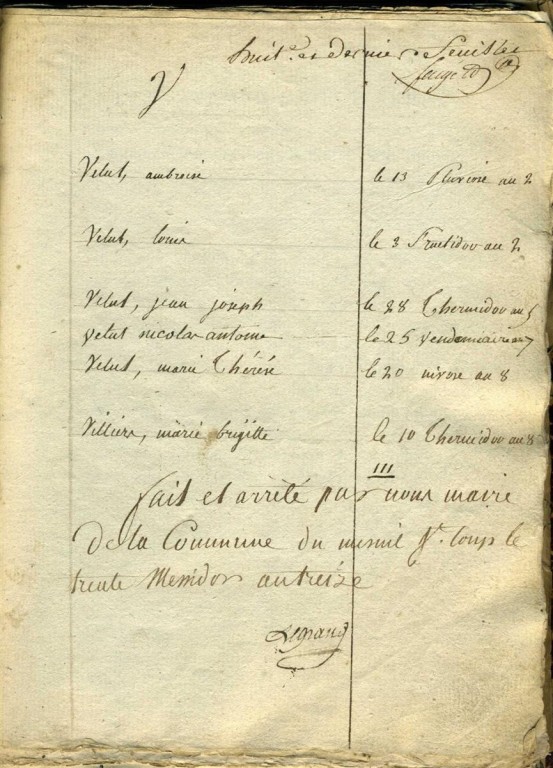 huit.e et dernier feuillet
V
Velut, ambroise le 13 Pluviose an 2
Velut, louis le 3 Fructidor an 2
Velut, jean joseph le 28 Thermidor an 5
velut nicolas antoine le 25 vendemiaire an 7
Velut, marie Thérèse le 20 nivose an 8
Villiers, marie brigitte le 10 Thermidor an 8
III
fait et arrêté par nous maire
De la Commune du mesnil St. loup le
trente Messidor an treize
Legrand